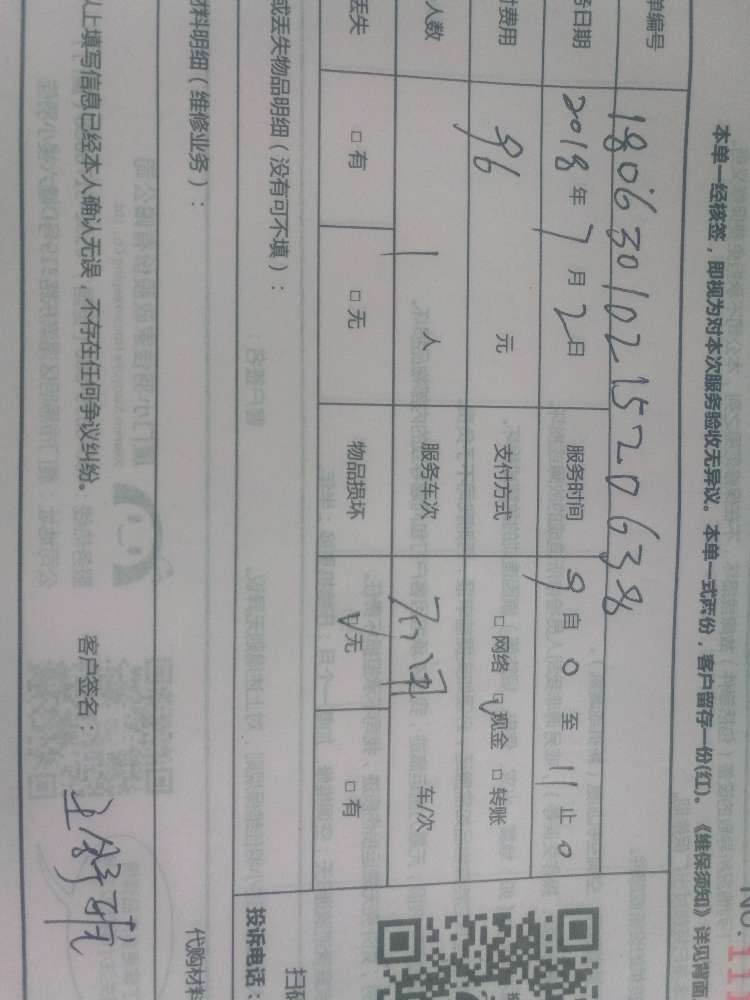 NO.111
本单一经核签，即视为对本次服务验收无异议。本单一式两份，客户留存一份(红)。《维保须知》详见背面
单编号 180630102152063 8
务日期 2018年7月2日 服务时间 9自0至11止0
付费用 96 元 支付方式 □网络 ☑现金 □转账
人数 1 人 服务车次 车/次
丢失 □有 □无 物品损坏 ☑无 □有
或丢失物品明细（没有可不填）：
投诉电话：
扫码
材料明细（维修业务）：
代购材料
以上填写信息已经本人确认无误，不存在任何争议纠纷。 客户签名：